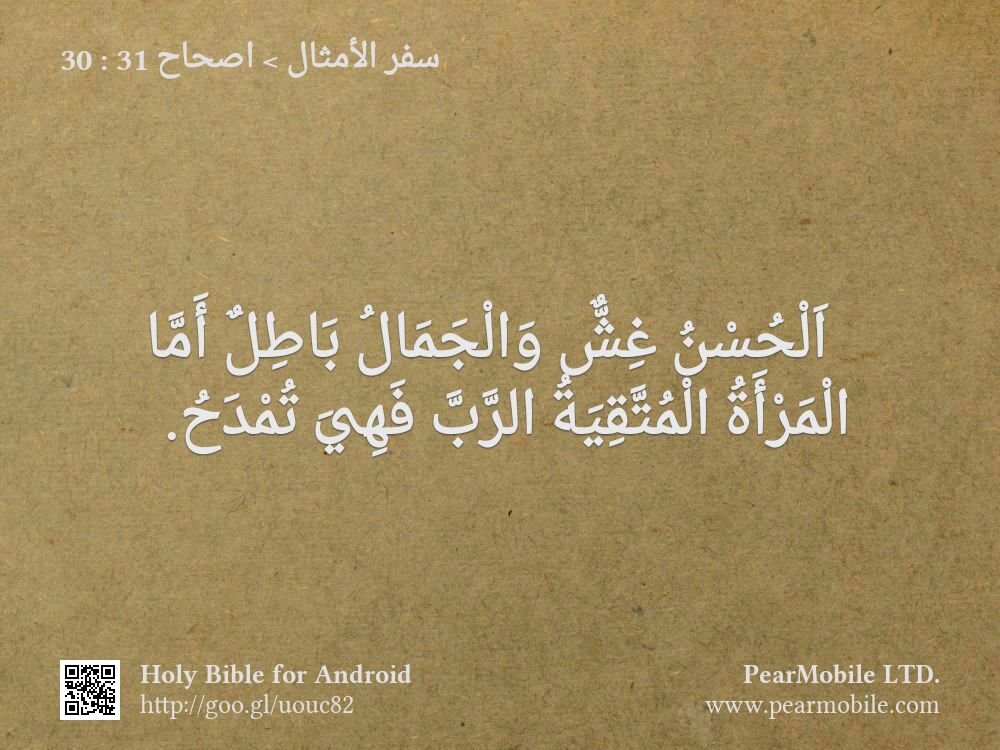 سفر الأمثال > اصحاح 31 : 30
اَلْحُسْنُ غِشٌّ وَالْجَمَالُ بَاطِلٌ أَمَّا
الْمَرْأَةُ الْمُتَّقِيَةُ الرَّبَّ فَهِيَ تُمْدَحُ.
Holy Bible for Android
http://goo.gl/uouc82
PearMobile LTD.
www.pearmobile.com